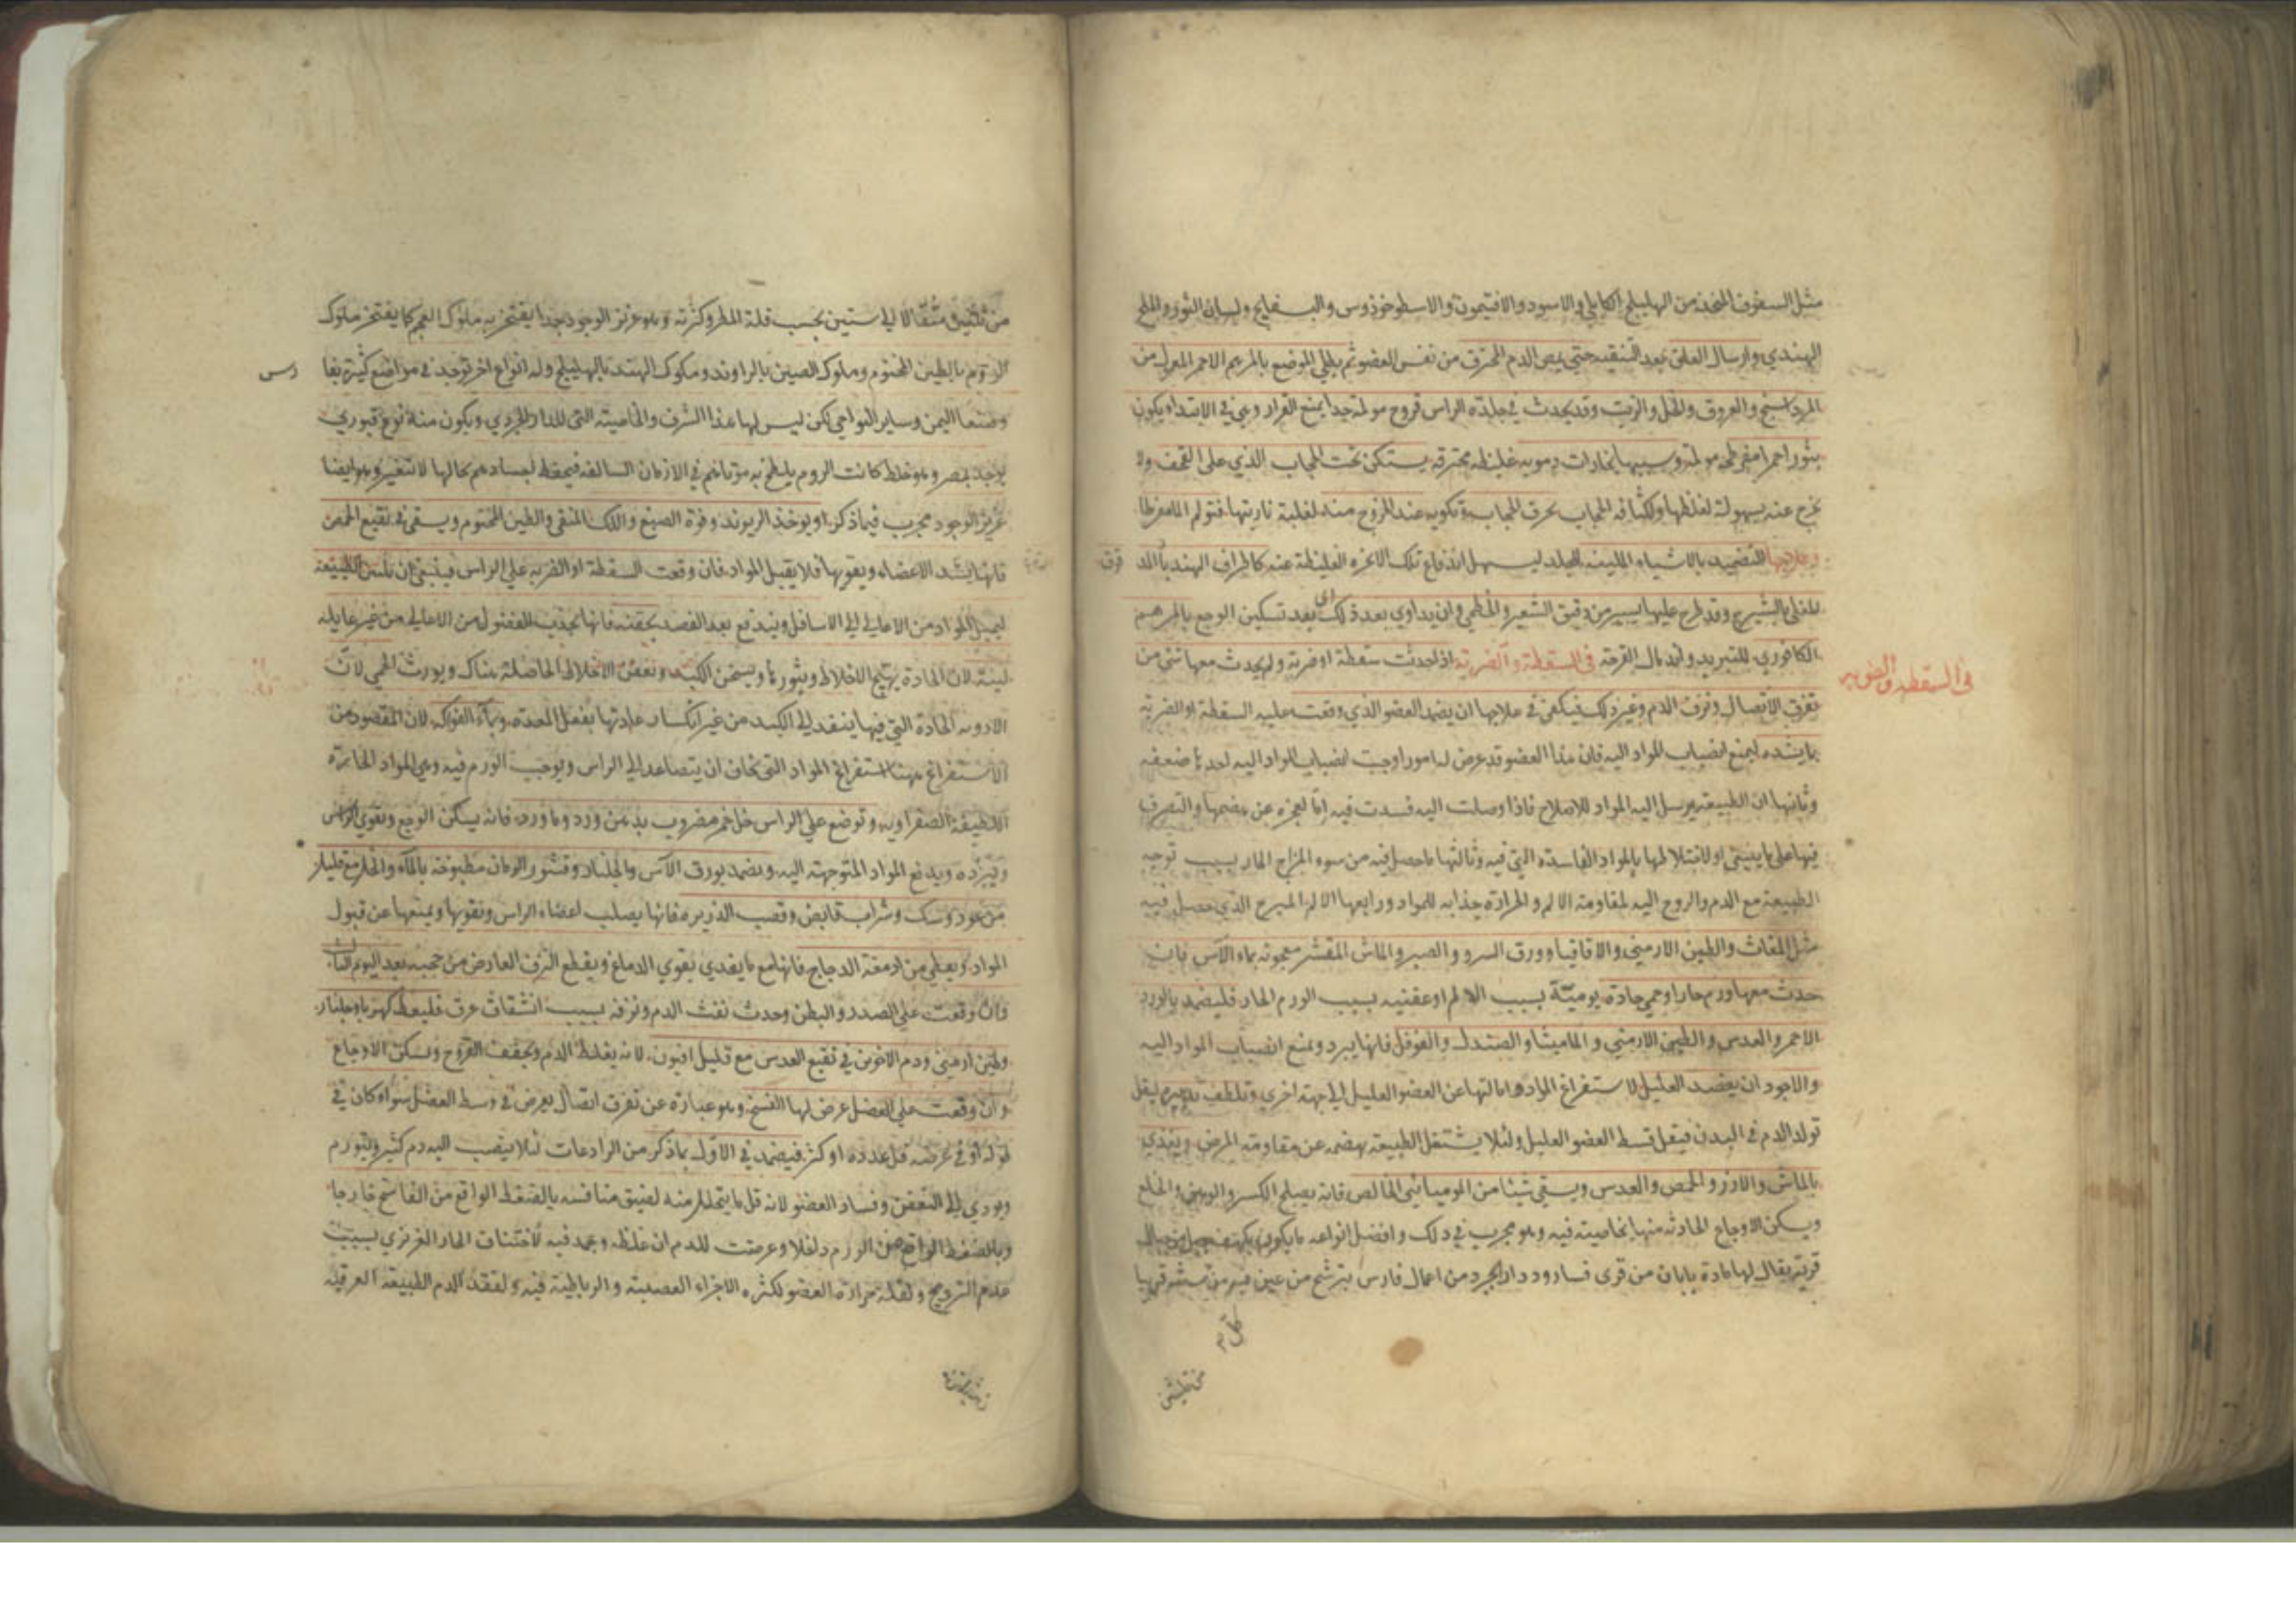 مثل السفوف المتخذ من الهليلج الكابلي والاسود والافتيمون والاسطوخوذوس والبسفايج ولسان الثور والملح
الهندي وارسال العلق بعد التنقية حتى يمص الدم المحترق من نفس العضو ثم يطلى الموضع بالمرهم الاحمر المعمول من
المرداسنج والعروق والخل والزيت وقد يحدث في جلدة الراس قروح مولمة جدا يمنع القرار وهي في الابتداء يكون
بثورا حمرا مفرطحة مولمة وسببها بخارات دموية غليظة محترقة يستكن تحت الحجاب الذي على القحف ولا
يخرج عنه بسهولة لغلظها ولكثافة الحجاب يحرق الحجاب وتكويه عند الخروج منه لغلبة ناريتها فتولم الما مفرطا
وعلاجها التضميد بالاشياء الملينة للجلد ليسهل اندفاع تلك الابخره الغليظة عنه كاطراف الهندبا المد قوق
المغلى بالشيرج وقد طرح عليها يسير من دقيق الشعير والخطمي وان يداوي بعد ذلك اى بعد تسكين الوجع بالمرهم
الكافوري للتبريد واندمال القرحة في السقطة والضربة اذا حدثت سقطة او ضربة ولم يحدث معها شئ من
في السقطه والضربه
تفرق الاتصال ونزف الدم وغير ذلك فيكفي في علاجها ان يضمد العضو الذي وقعت عليه السقطة او الضربة
بما يشده ليمنع انصباب المواد اليه فان هذا العضو قد عرض له امور اوجبت انصباب المواد اليه احدها ضعفه
وثانيها ان الطبيعة يرسل اليه المواد للاصلاح فاذا وصلت اليه فسدت فيه اما لعجزه عن هضمها والتصرف
فيها على ما ينبغي او لاختلاطها بالمواد الفاسدة التي فيه وثالثها ما حصل فيه من سوء المزاج الحار بسبب توجه
الطبيعة مع الدم والروح اليه لمقاومة الالم والحرارة جذابة للمواد ورابعها الالم المبرح الذي حصل فيه
مثل المغاث والطين الارمني والاقاقيا وورق السرو والصبر والماش المقشر معجونة بماء الآس فان
حدث معها ورم حار او حمى حادة يومية بسبب الالم او عفنية بسبب الورم الحار فليضمد بالورد
الاحمر والعدس والطين الارمني والماميثا والصندل والفوفل فانها يبرد ويمنع انصباب المواد اليه
والاجود ان يفصد العليل لاستفراغ المادة وامالتها عن العضو العليل الى جهة اخرى وتلطف تدبيره ليقل
تولد الدم في البدن فيقل قسط العضو العليل ولئلا يشتغل الطبيعة بهضمه عن مقاومة المرض ويغذي
بالماش والارز والحمص والعدس ويسقي شيئا من الموميائي الخالص فانه يصلح الكسر والوهن والخلع
ويسكن الاوجاع الحادثة منها بخاصيته فيه وهو مجرب في ذلك وافضل انواعه ما يكون بكهف جبل من جبال
قرية يقال لها مادة بابان من قرى فسا ودارابجرد من اعمال فارس يترشح من عين فيه من سنته قريبا
من ثلثين
من ثلثين مثقالا الى ستين بحسب قلة المطر وكثرته وهو عزيز الوجود جدا يفتخر به ملوك العجم كما يفتخر ملوك
الروم بالطين المختوم وملوك الصين بالراوند وملوك الهند بالهليلج وله انواع اخر توجد في مواضع كثيرة بفا رس
وصنعا اليمن وساير النواحي لكن ليس لها هذا الشرف والخاصية التي للدارابجردي ويكون منه نوع قبوري
يوجد بمصر وهو خلط كانت الروم يلطخ به موتاهم في الازمان السالفة فيحفظ اجسادهم كحالها لا تتغير وهو ايضا
عزيز الوجود مجرب فيما ذكر او يوخذ الريوند وفوة الصبغ واللك المنقي والطين المختوم ويسقى في نقيع الحمص
فانها يشد الاعضاء ويقويها فلا يقبل المواد فان وقعت السقطة او الضربة على الراس فينبغي ان تلين الطبيعة
ليميل المواد من الاعالي الى الاسافل ويندفع بعد الفصد بحقنة فانها يجذب الفضول من الاعالي من غير غايلة
لينة لان الحادة يهيج الاخلاط ويثورها ويسخن الكبد ويعفن الاخلاط الحاصلة هناك ويورث الحمى لان
الادوية الحادة التي فيها ينفذ الى الكبد من غير انكسار حدتها بفعل المعدة وبماء الفواكه لان المقصود من
الاستفراغ ههنا استفراغ المواد التي يخاف ان يتصاعد الى الراس ويوجب الورم فيه وهي المواد الحارة
اللطيفة الصفراوية وتوضع على الراس خل خمر مضروب بدهن ورد وماورد فانه يسكن الوجع ويقوي الراس
ويبرده ويدفع المواد المتوجهة اليه ويضمد بورق الآس والجلنار وقشور الرمان مطبوخة بالماء والخل مع قليل
من عود وسك وشراب قابض وقصب الذريرة فانها يصلب اعضاء الراس ويقويها ويمنعها عن قبول
المواد ويعطى من ادمغة الدجاج فانها مع ما يغذي يقوي الدماغ ويقطع النزف العارض من حجبه بعد اليوم الثالث
فان وقعت على الصدر والبطن وحدث نفث الدم ونزفه بسبب انشقاق عرق فليعط كهربا وجلنار
وطين ارمني ودم الاخوين في نقيع العدس مع قليل افيون لانه يغلظ الدم ويجفف القروح ويسكن الاوجاع
وان وقعت على العضل عرض لها الفسخ وهو عبارة عن تفرق اتصال يعرض في وسط العضل سواء كان في
طوله او في عرضه قل عدده او كثر فيضمد في الاول بما ذكر من الرادعات لئلا ينصب اليه دم كثير ويتورم
ويودي الى التعفن وفساد العضو لانه قل ما يتحلل منه لضيق منافسه بالضغط الواقع من الفاسخ خارجا
وبالضغط الواقع من الورم داخلا وعرضت للدم ان غلظ وجمد فيه لاختناق الحار الغريزي بسبب
عدم الترويح ولقلة حرارة العضو لكثرة الاجزاء العصبية والرباطية فيه ولفقد الدم الطبيعة العرقية